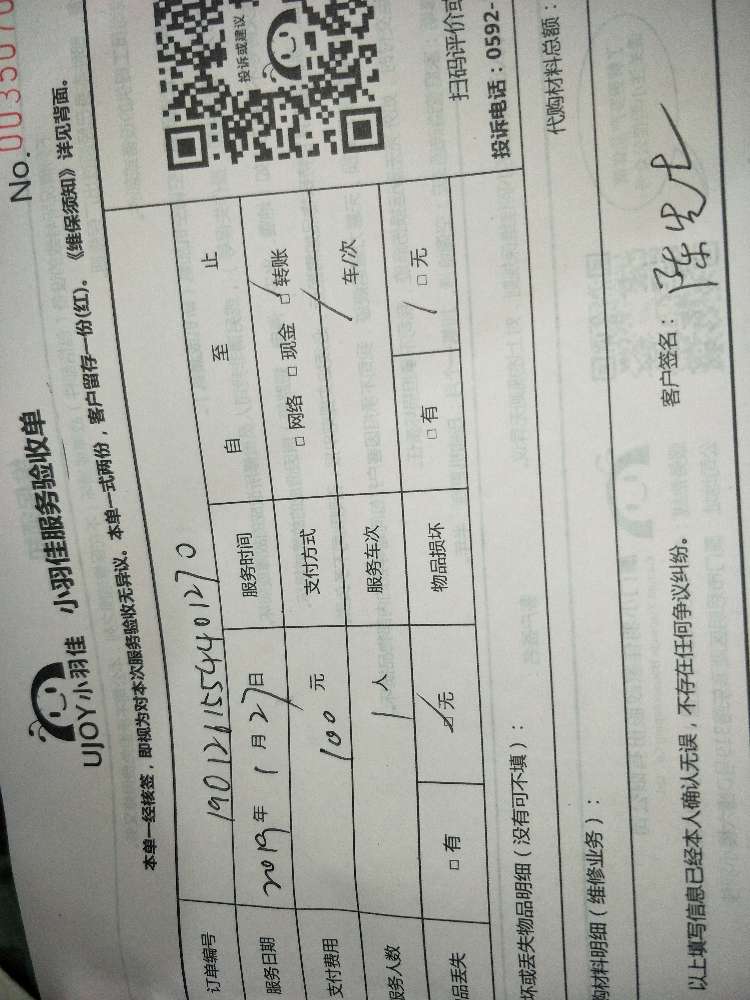 No.0035070
UJOY小羽佳 小羽佳服务验收单
本单一经核签，即视为对本次服务验收无异议。本单一式两份，客户留存一份(红)。《维保须知》详见背面。
订单编号 190126155440127 0
服务日期 2019年1月27日 服务时间 自 至 止
支付费用 100元 支付方式 □网络 □现金 □转账
服务人数 1人 服务车次 / 车/次
品丢失 □有 □无 物品损坏 □有 □无
投诉或建议
扫码评价或
投诉电话：0592-
坏或丢失物品明细（没有可不填）：
购材料明细（维修业务）： 代购材料总额：
以上填写信息已经本人确认无误，不存在任何争议纠纷。 客户签名：陈先生